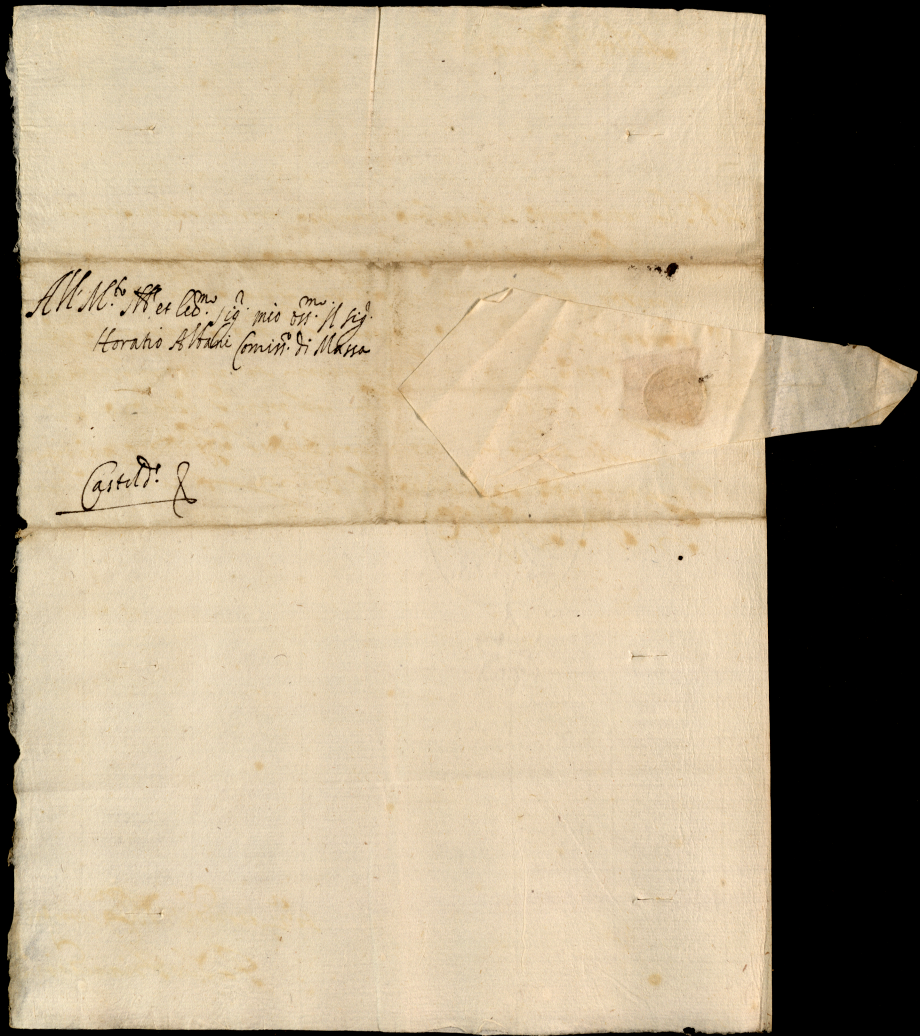 All' M.to Ill.re et Ecc.mo Sig.r mio oss.mo Il Sig.r
Horatio Albani Comiss.o di Massa
Casteld.e